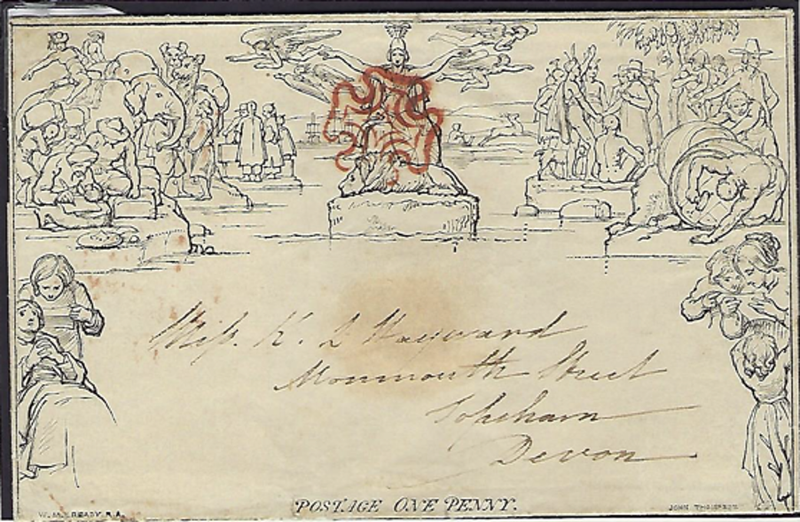 Miss. K. L Hayward
Monmouth Street
Topsham
Devon
POSTAGE ONE PENNY.
W. MULREADY. R.A.
JOHN THOMPSON